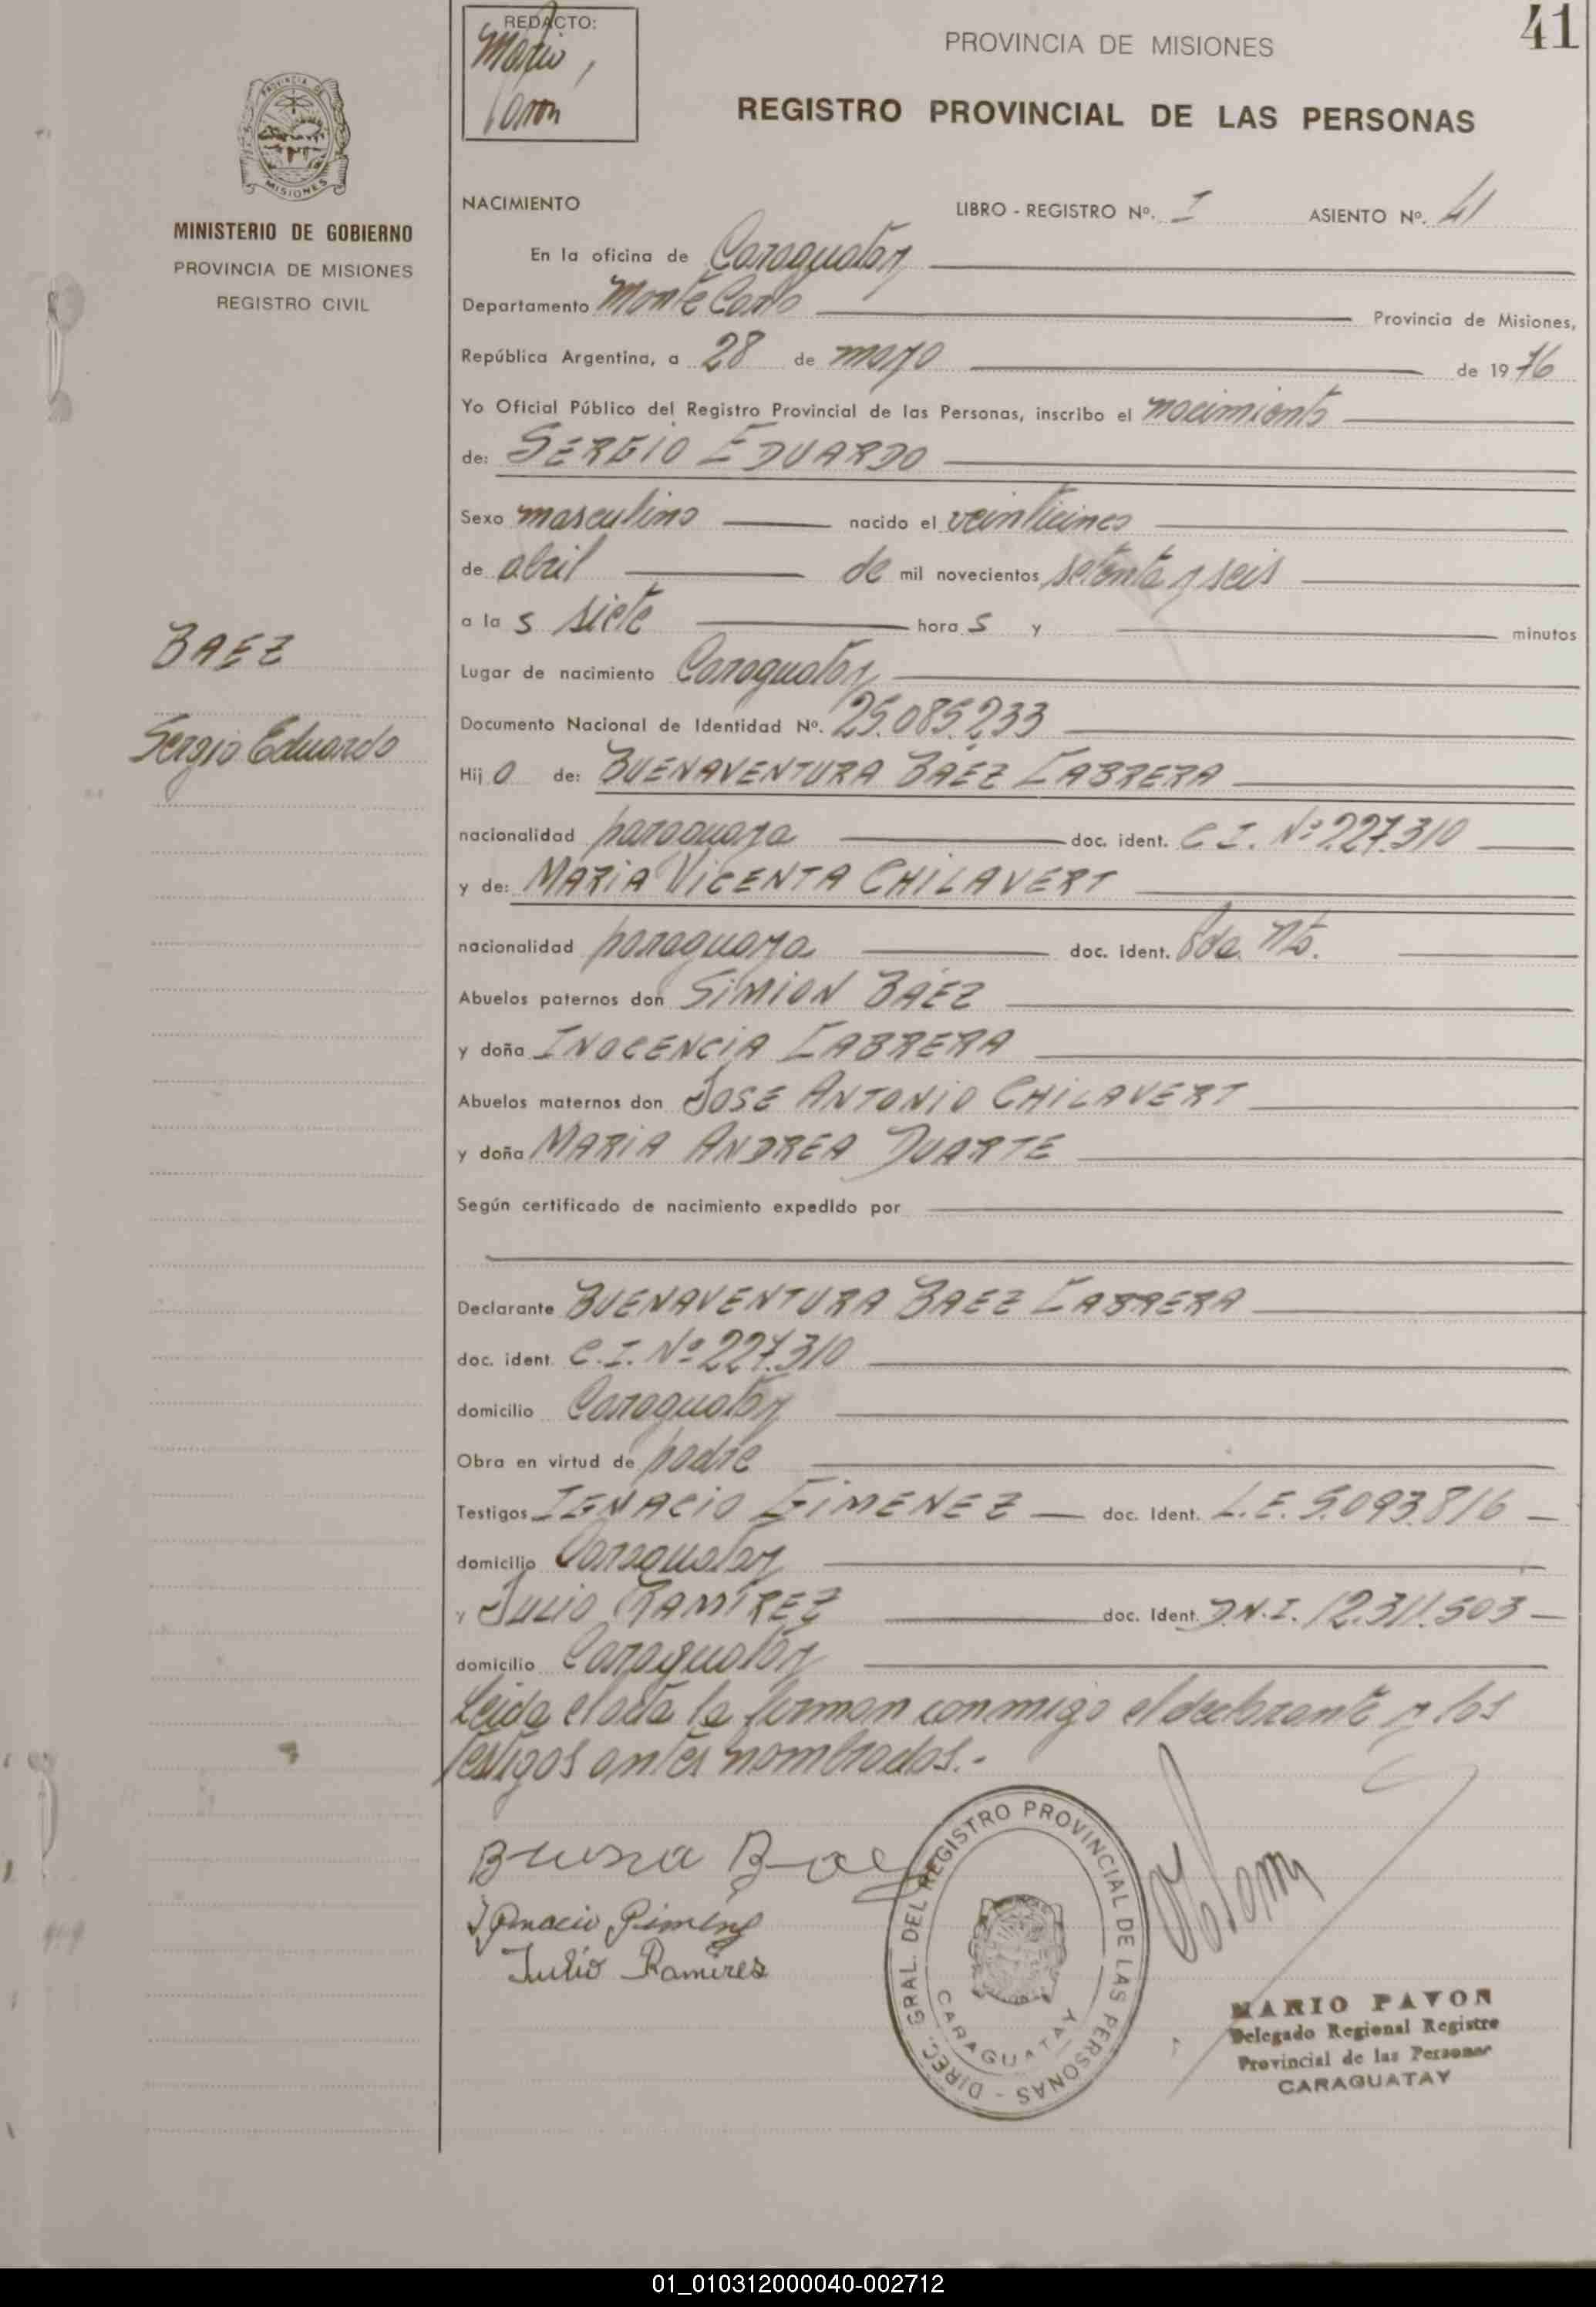 41
REDACTO:
Mario
Pavon
PROVINCIA DE MISIONES
REGISTRO PROVINCIAL DE LAS PERSONAS
PROVINCIA DE
MISIONES
MINISTERIO DE GOBIERNO
PROVINCIA DE MISIONES
REGISTRO CIVIL
BAEZ
Sergio Eduardo
NACIMIENTO LIBRO - REGISTRO Nº. I ASIENTO Nº. 41
En la oficina de Caraguatay
Departamento Monte Carlo Provincia de Misiones,
República Argentina, a 28 de mayo de 1976
Yo Oficial Público del Registro Provincial de las Personas, inscribo el nacimiento
de: SERGIO EDUARDO
Sexo masculino nacido el veinticinco
de abril de mil novecientos setenta y seis
a las siete horas y minutos
Lugar de nacimiento Caraguatay
Documento Nacional de Identidad Nº. 25.085.233
Hijo de: BUENAVENTURA BAEZ CABRERA
nacionalidad paraguaya doc. ident. C.I. Nº 227.310
y de: MARIA VICENTA CHILAVERT
nacionalidad paraguaya doc. ident.
Abuelos paternos don SIMION BAEZ
y doña INOCENCIA CABRERA
Abuelos maternos don JOSE ANTONIO CHILAVERT
y doña MARIA ANDREA DUARTE
Según certificado de nacimiento expedido por
Declarante BUENAVENTURA BAEZ CABRERA
doc. ident. C.I. Nº 227.310
domicilio Caraguatay
Obra en virtud de padre
Testigos IGNACIO GIMENEZ doc. Ident. L.E. 5.093.816
domicilio Caraguatay
y JULIO RAMIREZ doc. Ident. D.N.I. 12.311.503
domicilio Caraguatay
Leida el acta la firman conmigo el declarante y los
testigos antes nombrados.-
Ignacio Gimenez
Julio Ramires
DIREC. GRAL. DEL REGISTRO PROVINCIAL DE LAS PERSONAS -
CARAGUATAY
MARIO PAVON
Delegado Regional Registro
Provincial de las Personas
CARAGUATAY
01_010312000040-002712